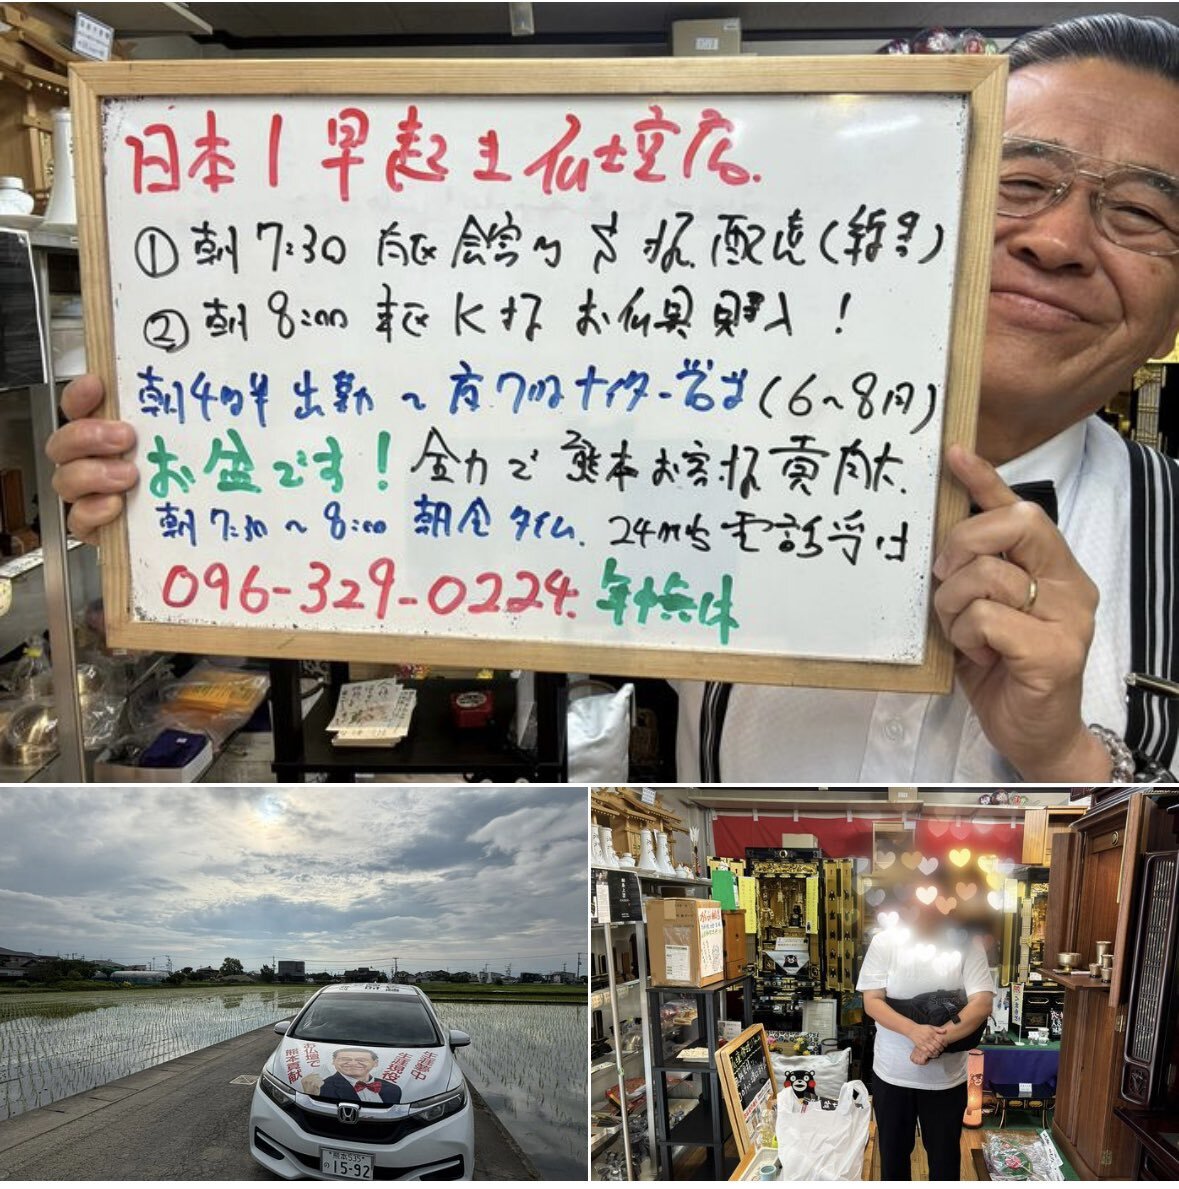 日本1早起き仏壇店.
① 朝7:30 区 会館 お客様 配達(
② 朝8:00 東区K様 お仏具購入!
朝4時半出勤~夜7時ナイター営業(6~8月)
お盆です! 全力で熊本お客様貢献
朝7:30~8:00 朝会タイム. 24時間電話受付
096-329-0224. 年中無休
生涯夢中
生涯現役
お仏壇で
熊本貢献
熊本 535
の 15-92